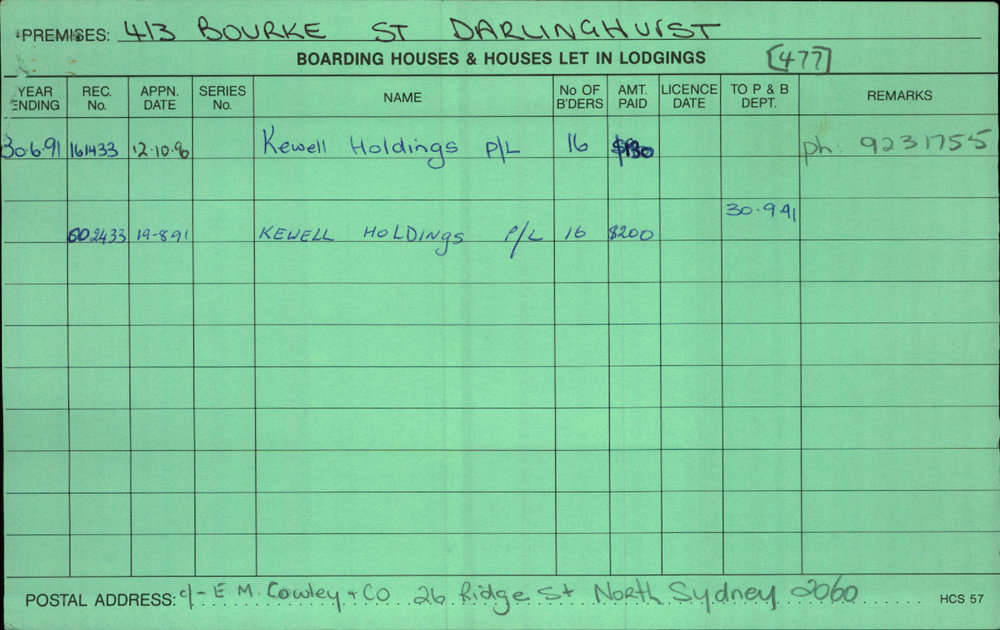 PREMISES: 413 BOURKE ST DARLINGHURST
BOARDING HOUSES & HOUSES LET IN LODGINGS [477]
YEAR ENDING REC. No. APPN. DATE SERIES No. NAME No OF B'DERS AMT. PAID LICENCE DATE TO P & B DEPT. REMARKS
30.6.91 161433 12.10.90 Kewell Holdings P/L 16 $130 ph: 9231755
30.9.91
602433 19-8.91 KEWELL HOLDINGS P/L 16 $200
POSTAL ADDRESS: c/- E. M. Cowley + CO 26 Ridge St North Sydney 2060 HCS 57